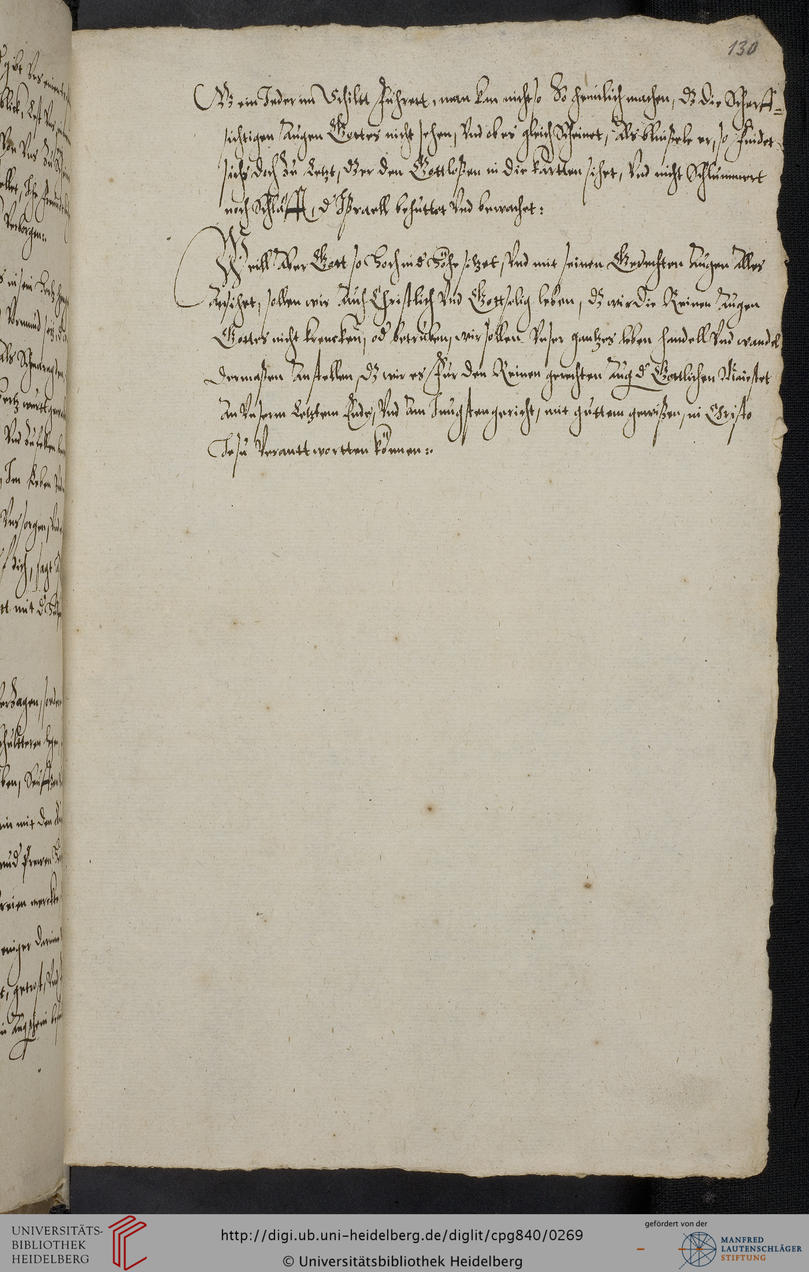 130
Wz ein Jeder im Schiltt führett, man kan nichts so heimlich machen, dz die Scharff=
sichtigen Augen Gottes nicht sehen, Vnd ob es gleich Scheinet, Als blintzele er, so findet
sichs doch zu Letzt, dz er den Gottlosen in die kartten sihet, Vnd nicht Schlummert
noch Schläfft, d' Jsraell behüttet Vnd bewachet:
Weill Aber Gott so Hoch in d' Höhe sitzet, Vnd mit seinen Gerechten Augen Alles
Ansihet, sollen wir Auch Christlich Vnd Gottselig leben, dz wir die Reinen Augen
Gottes nicht krencken, od' betrüben, wir sollen Vnser gantzes leben handell Vnd wandel
dermassen Anstellen, dz wir es für den Reinen gerechten Aug d' Gottlichen Maiestet
An Vnserm Letztem Ende, Vnd Am Jüngsten gericht, mit guttem gewissen, in Christo
Jesu Verantwortten können:
UNIVERSITÄTS-
BIBLIOTHEK
HEIDELBERG
http://digi.ub.uni-heidelberg.de/diglit/cpg840/0269
© Universitätsbibliothek Heidelberg
gefördert von der
MANFRED
LAUTENSCHLÄGER
STIFTUNG